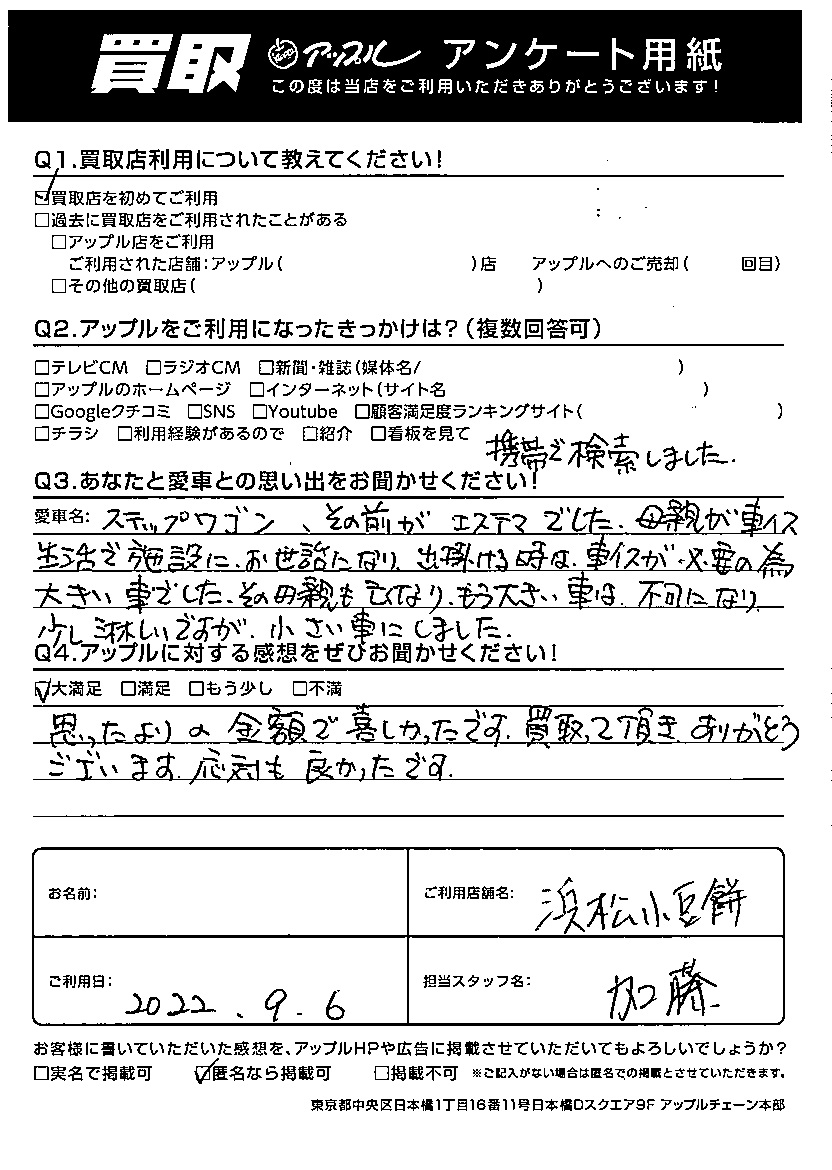 買取 アップル アンケート用紙
この度は当店をご利用いただきありがとうございます!
Q1.買取店利用について教えてください!
☑買取店を初めてご利用
□過去に買取店をご利用されたことがある
□アップル店をご利用
ご利用された店舗:アップル( )店 アップルへのご売却( 回目)
□その他の買取店( )
Q2.アップルをご利用になったきっかけは?(複数回答可)
□テレビCM □ラジオCM □新聞・雑誌(媒体名/ )
□アップルのホームページ □インターネット(サイト名 )
□Googleクチコミ □SNS □Youtube □顧客満足度ランキングサイト( )
□チラシ □利用経験があるので □紹介 □看板を見て
携帯で検索しました.
Q3.あなたと愛車との思い出をお聞かせください!
愛車名: ステップワゴン、その前が エステマ でした. 母親が車イス
生活で施設に、お世話になり、出掛ける時は、車イスが必要の為
大きい車でした.その母親も亡くなり、もう大きい車は、不可になり
少し淋しいですが、小さい車にしました.
Q4.アップルに対する感想をぜひお聞かせください!
☑大満足 □満足 □もう少し □不満
思ったよりの金額で喜しかったです.買取って頂き、ありがとう
ございます.応対も良かったです.
お名前:
ご利用店舗名: 浜松小豆餅
ご利用日: 2022.9.6
担当スタッフ名: 加藤
お客様に書いていただいた感想を、アップルHPや広告に掲載させていただいてもよろしいでしょうか?
□実名で掲載可 ☑匿名なら掲載可 □掲載不可 ※ご記入がない場合は匿名での掲載とさせていただきます。
東京都中央区日本橋1丁目16番11号日本橋Dスクエア9F アップルチェーン本部